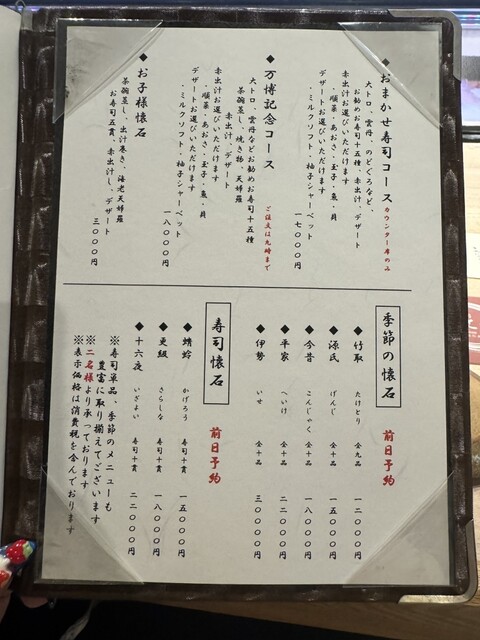 ◆おまかせ寿司コース カウンター席のみ
大トロ、雲丹、のどぐろなど、
お勧めお寿司十五種、赤出汁、デザート
赤出汁お選びいただけます
・順菜・あおさ・玉子・魚・貝
デザートお選びいただけます
・ミルクソフト・柚子シャーベット
一七〇〇〇円
◆万博記念コース ご注文は九時まで
大トロ、雲丹などお勧めお寿司十五種
茶碗蒸し、焼き物、天婦羅
赤出汁、デザート
赤出汁お選びいただけます
・順菜・あおさ・玉子・魚・貝
デザートお選びいただけます
・ミルクソフト・柚子シャーベット
一八〇〇〇円
◆お子様懐石
茶碗蒸し、出汁巻き、海老天婦羅
お寿司五貫、赤出汁、デザート
三〇〇〇円
季節の懐石 前日予約
◆竹取 たけとり 全九品 一二〇〇〇円
◆源氏 げんじ 全十品 一五〇〇〇円
◆今昔 こんじゃく 全十品 一八〇〇〇円
◆平家 へいけ 全十品 二二〇〇〇円
◆伊勢 いせ 全十品 三〇〇〇〇円
寿司懐石 前日予約
◆蜻蛉 かげろう 寿司十貫 一五〇〇〇円
◆更級 さらしな 寿司十貫 一八〇〇〇円
◆十六夜 いざよい 寿司十貫 二二〇〇〇円
※寿司単品、季節のメニューも
豊富に取り揃えてございます
※二名様より承っております
※表示価格は消費税を含んでおります